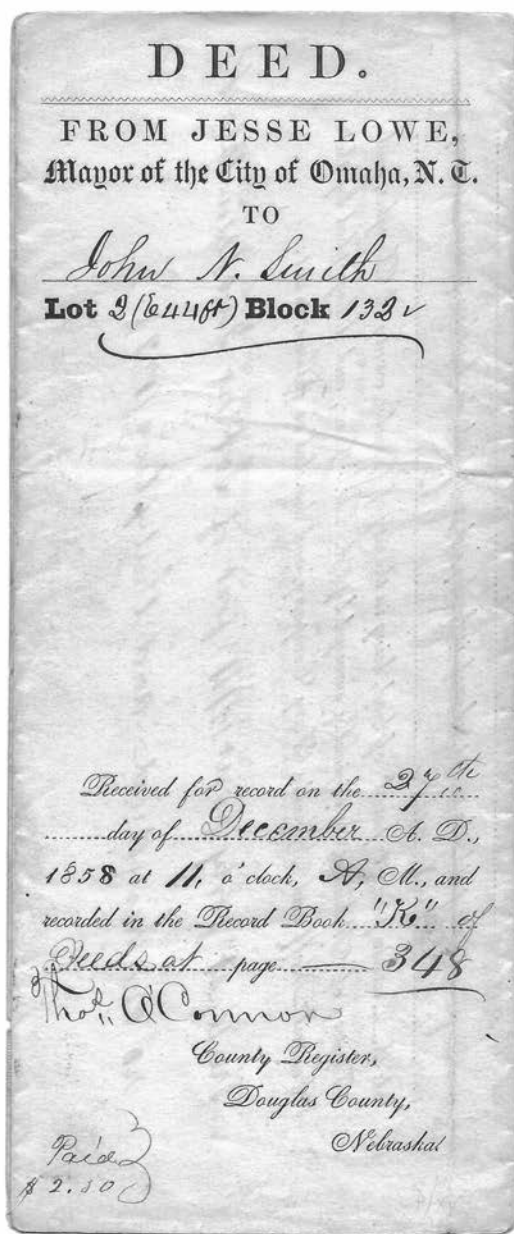 DEED.
FROM JESSE LOWE,
Mayor of the City of Omaha, N. T.
TO
John N. Smith
Lot 2 (E 44 ft) Block 132
Received for record on the 27th
day of December A. D.,
1858 at 11, o'clock, A, M., and
recorded in the Record Book "K" of
Deeds at page 348
Thos. O'Connor
County Register,
Douglas County,
Nebraska
Paid
$ 2.50